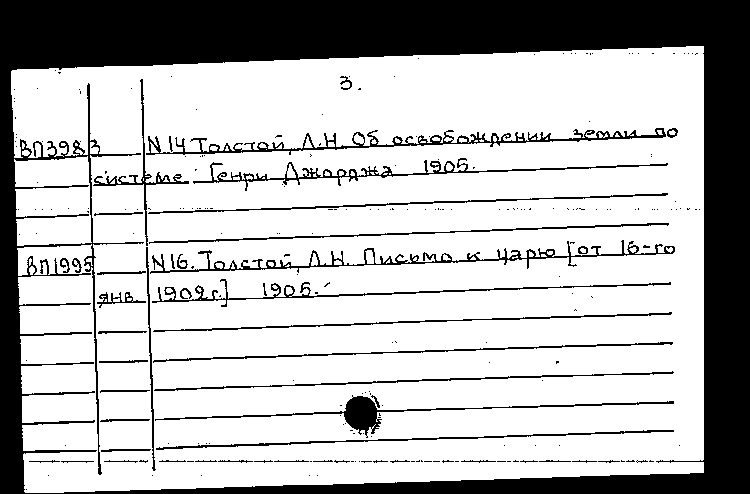 3.
ВП3983 N.14 Толстой, Л.Н. Об освобождении земли по
системе Генри Джорджа 1905.
ВП1995 N16. Толстой, Л.Н. Письмо к царю [от 16-го
янв. 1902г.] 1905.